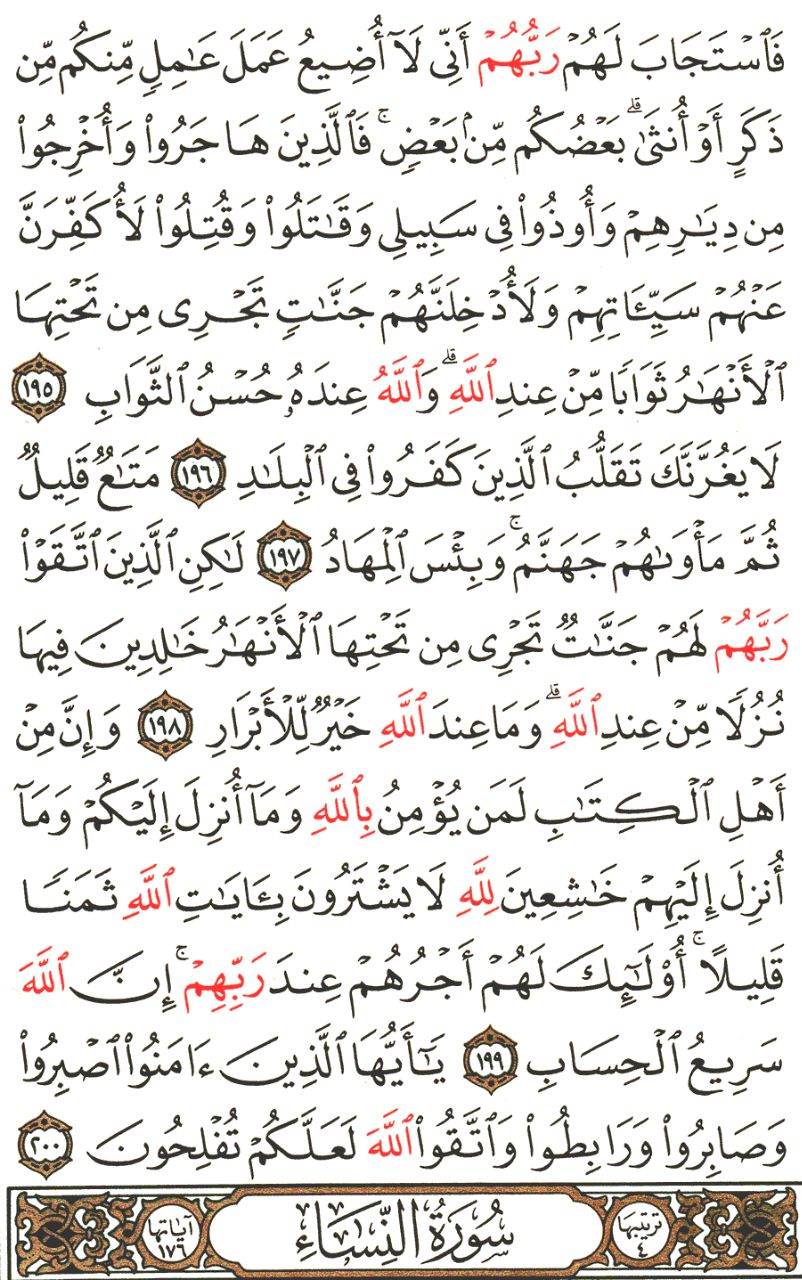 فَٱسْتَجَابَ لَهُمْ رَبُّهُمْ أَنِّى لَآ أُضِيعُ عَمَلَ عَـٰمِلٍ مِّنكُم مِّن
ذَكَرٍ أَوْ أُنثَىٰ ۖ بَعْضُكُم مِّنۢ بَعْضٍ ۖ فَٱلَّذِينَ هَاجَرُوا۟ وَأُخْرِجُوا۟
مِن دِيَـٰرِهِمْ وَأُوذُوا۟ فِى سَبِيلِى وَقَـٰتَلُوا۟ وَقُتِلُوا۟ لَأُكَفِّرَنَّ
عَنْهُمْ سَيِّـَٔاتِهِمْ وَلَأُدْخِلَنَّهُمْ جَنَّـٰتٍ تَجْرِى مِن تَحْتِهَا
ٱلْأَنْهَـٰرُ ثَوَابًا مِّنْ عِندِ ٱللَّهِ ۗ وَٱللَّهُ عِندَهُۥ حُسْنُ ٱلثَّوَابِ ١٩٥
لَا يَغُرَّنَّكَ تَقَلُّبُ ٱلَّذِينَ كَفَرُوا۟ فِى ٱلْبِلَـٰدِ ١٩٦ مَتَـٰعٌ قَلِيلٌ
ثُمَّ مَأْوَىٰهُمْ جَهَنَّمُ ۚ وَبِئْسَ ٱلْمِهَادُ ١٩٧ لَـٰكِنِ ٱلَّذِينَ ٱتَّقَوْا۟
رَبَّهُمْ لَهُمْ جَنَّـٰتٌ تَجْرِى مِن تَحْتِهَا ٱلْأَنْهَـٰرُ خَـٰلِدِينَ فِيهَا
نُزُلًا مِّنْ عِندِ ٱللَّهِ ۗ وَمَا عِندَ ٱللَّهِ خَيْرٌ لِّلْأَبْرَارِ ١٩٨ وَإِنَّ مِنْ
أَهْلِ ٱلْكِتَـٰبِ لَمَن يُؤْمِنُ بِٱللَّهِ وَمَآ أُنزِلَ إِلَيْكُمْ وَمَآ
أُنزِلَ إِلَيْهِمْ خَـٰشِعِينَ لِلَّهِ لَا يَشْتَرُونَ بِـَٔايَـٰتِ ٱللَّهِ ثَمَنًا
قَلِيلًا ۚ أُو۟لَـٰٓئِكَ لَهُمْ أَجْرُهُمْ عِندَ رَبِّهِمْ ۚ إِنَّ ٱللَّهَ
سَرِيعُ ٱلْحِسَابِ ١٩٩ يَـٰٓأَيُّهَا ٱلَّذِينَ ءَامَنُوا۟ ٱصْبِرُوا۟
وَصَابِرُوا۟ وَرَابِطُوا۟ وَٱتَّقُوا۟ ٱللَّهَ لَعَلَّكُمْ تُفْلِحُونَ ٢٠٠
ترتيبها ٤ سُورَةُ النِّسَاءِ آياتها ١٧٦